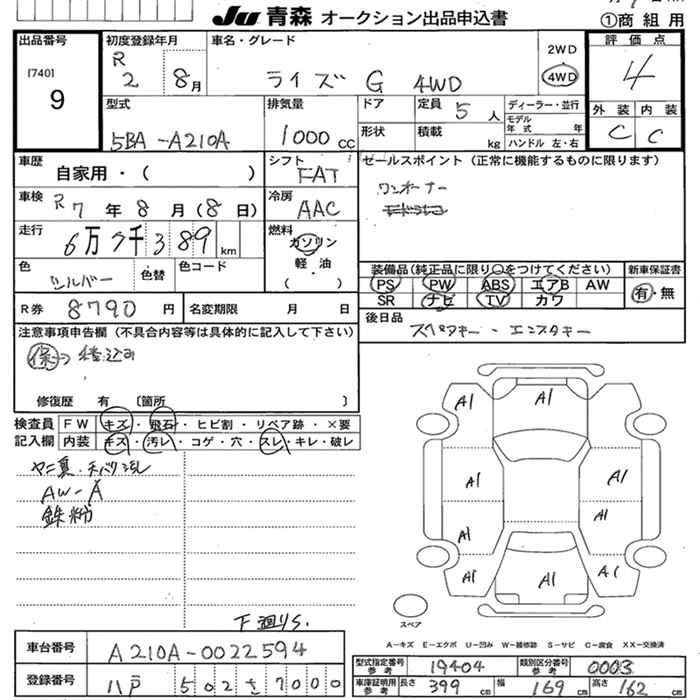 JU 青森 オークション出品申込書
①商 組 用
出品番号
[740]
9
初度登録年月
R 2 8月
車名・グレード
ライズ G 4WD
2WD
4WD
評 価 点
4
型式
5BA-A210A
排気量
1000 cc
ドア
定員 5人
ディーラー・並行
モデル年式 年
形状
積載 kg
ハンドル 左・右
外 装
内 装
C
C
車歴
自家用・( )
シフト
FAT
セールスポイント(正常に機能するものに限ります)
ワンオーナー
車検
R7年8月(8日)
冷房
AAC
走行
6万 7千389 km
燃料
ガソリン
軽・油
( )
色
シルバー
色替
色コード
装備品(純正品に限り○をつけてください)
新車保証書
PS PW ABS エアB AW
SR ナビ TV カワ
有・無
R券
8790円
名変期限 月 日
後日品
スペアキー・エンスタキー
注意事項申告欄(不具合内容等は具体的に記入して下さい)
積込み
修復歴 有 〔箇所 〕
検査員記入欄
FW キズ・飛石・ヒビ割・リペア跡・×要
内装 キズ・汚レ・コゲ・穴・スレ・キレ・破レ
AW-A
鉄粉
下廻りS.
A1
A1
A1
A1
A1
A1
A1
A1
A1
A1
スペア
A-キズ E-エクボ U-凹み W-補修跡 S-サビ C-腐食 XX-交換済
車台番号
A210A-0022594
登録番号
八戸 502 さ 7000
型式指定番号参考
19404
類別区分番号参考
0003
車庫証明用参考
長さ 399 cm
幅 169 cm
高さ 162 cm